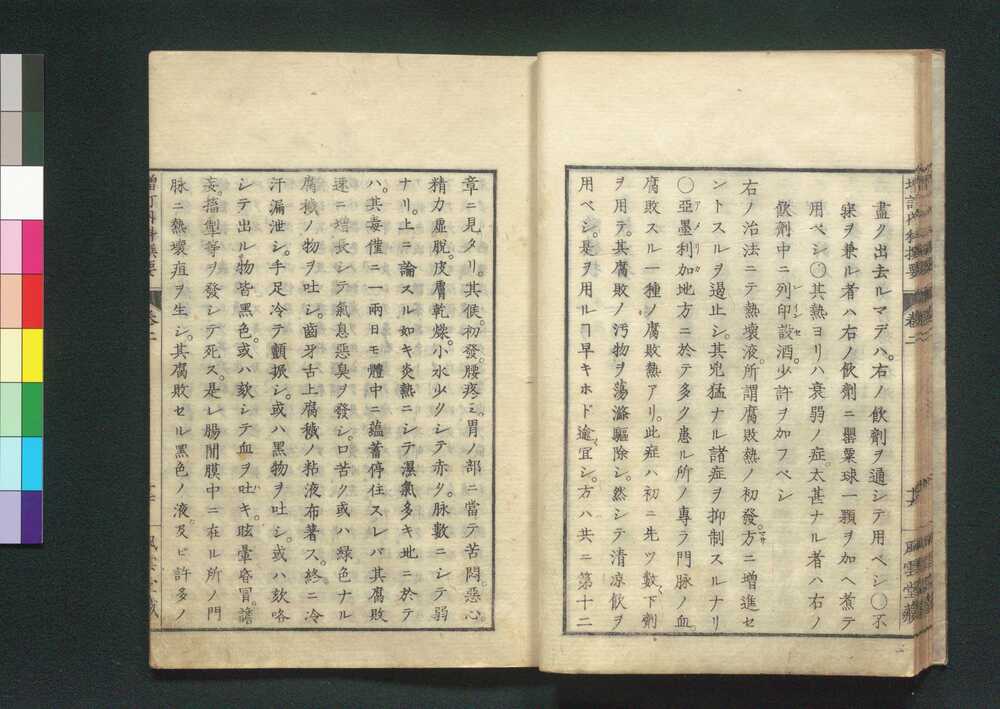 盡ク出去ルマデハ。右ノ飲劑ヲ通シテ用ベシ〇不
寐ヲ兼ル者ハ右ノ飲劑ニ罌粟球一顆ヲ加ヘ煮テ
用ベシ〇其熱ヨリハ衰弱ノ症太甚ナル者ハ右ノ
飲劑中ニ列印設酒。少許ヲ加フベシ
右ノ治法ニテ熱壞液。所謂腐敗熱ノ初發。方ニ增進セ
ントスルヲ遏止シ。其兇猛ナル諸症ヲ抑制スルナリ
〇亞墨利加地方ニ於テ多ク患ル所ノ專ラ門脉ノ血。
腐敗スル一種ノ腐敗熱アリ。此症ハ初ニ先ツ數〻下劑
ヲ用テ。其腐敗ノ汚物ヲ蕩滌驅除シ。然シテ清凉飲ヲ
用ベシ。是ヲ用ルヿ早キホド逾〻宜シ。方ハ共ニ第十二
增訂內科撰要 卷二 風雲堂藏
章ニ見タリ。其候。初發。腰疼ミ。胃ノ部ニ當テ苦悶。惡心。
精力虛脫。皮膚乾燥。小水少クシテ赤ク。脉數ニシテ弱
ナリ。上ニ論スル如キ炎熱ニシテ濕氣多キ地ニ於テ
ハ。其毒僅ニ一兩日モ體中ニ蘊蓄停住スレバ其腐敗
速ニ增長シテ氣息惡臭ヲ發シ。口苦ク或ハ綠色ナル
腐穢ノ物ヲ吐シ。齒牙舌上腐穢ノ粘液布著ス。終ニ冷
汗漏泄シ。手足冷テ顫振シ。或ハ黑物ヲ吐シ。或ハ欬咯
シテ出ル物皆黑色。或ハ欬シテ血ヲ吐キ。眩暈昏冒。譫
妄。搐掣等ヲ發シテ死ス。是レ腸間膜中ニ在ル所ノ門
脉ニ熱壞疽ヲ生シ。其腐敗セル黑色ノ液。及ビ許多ノ